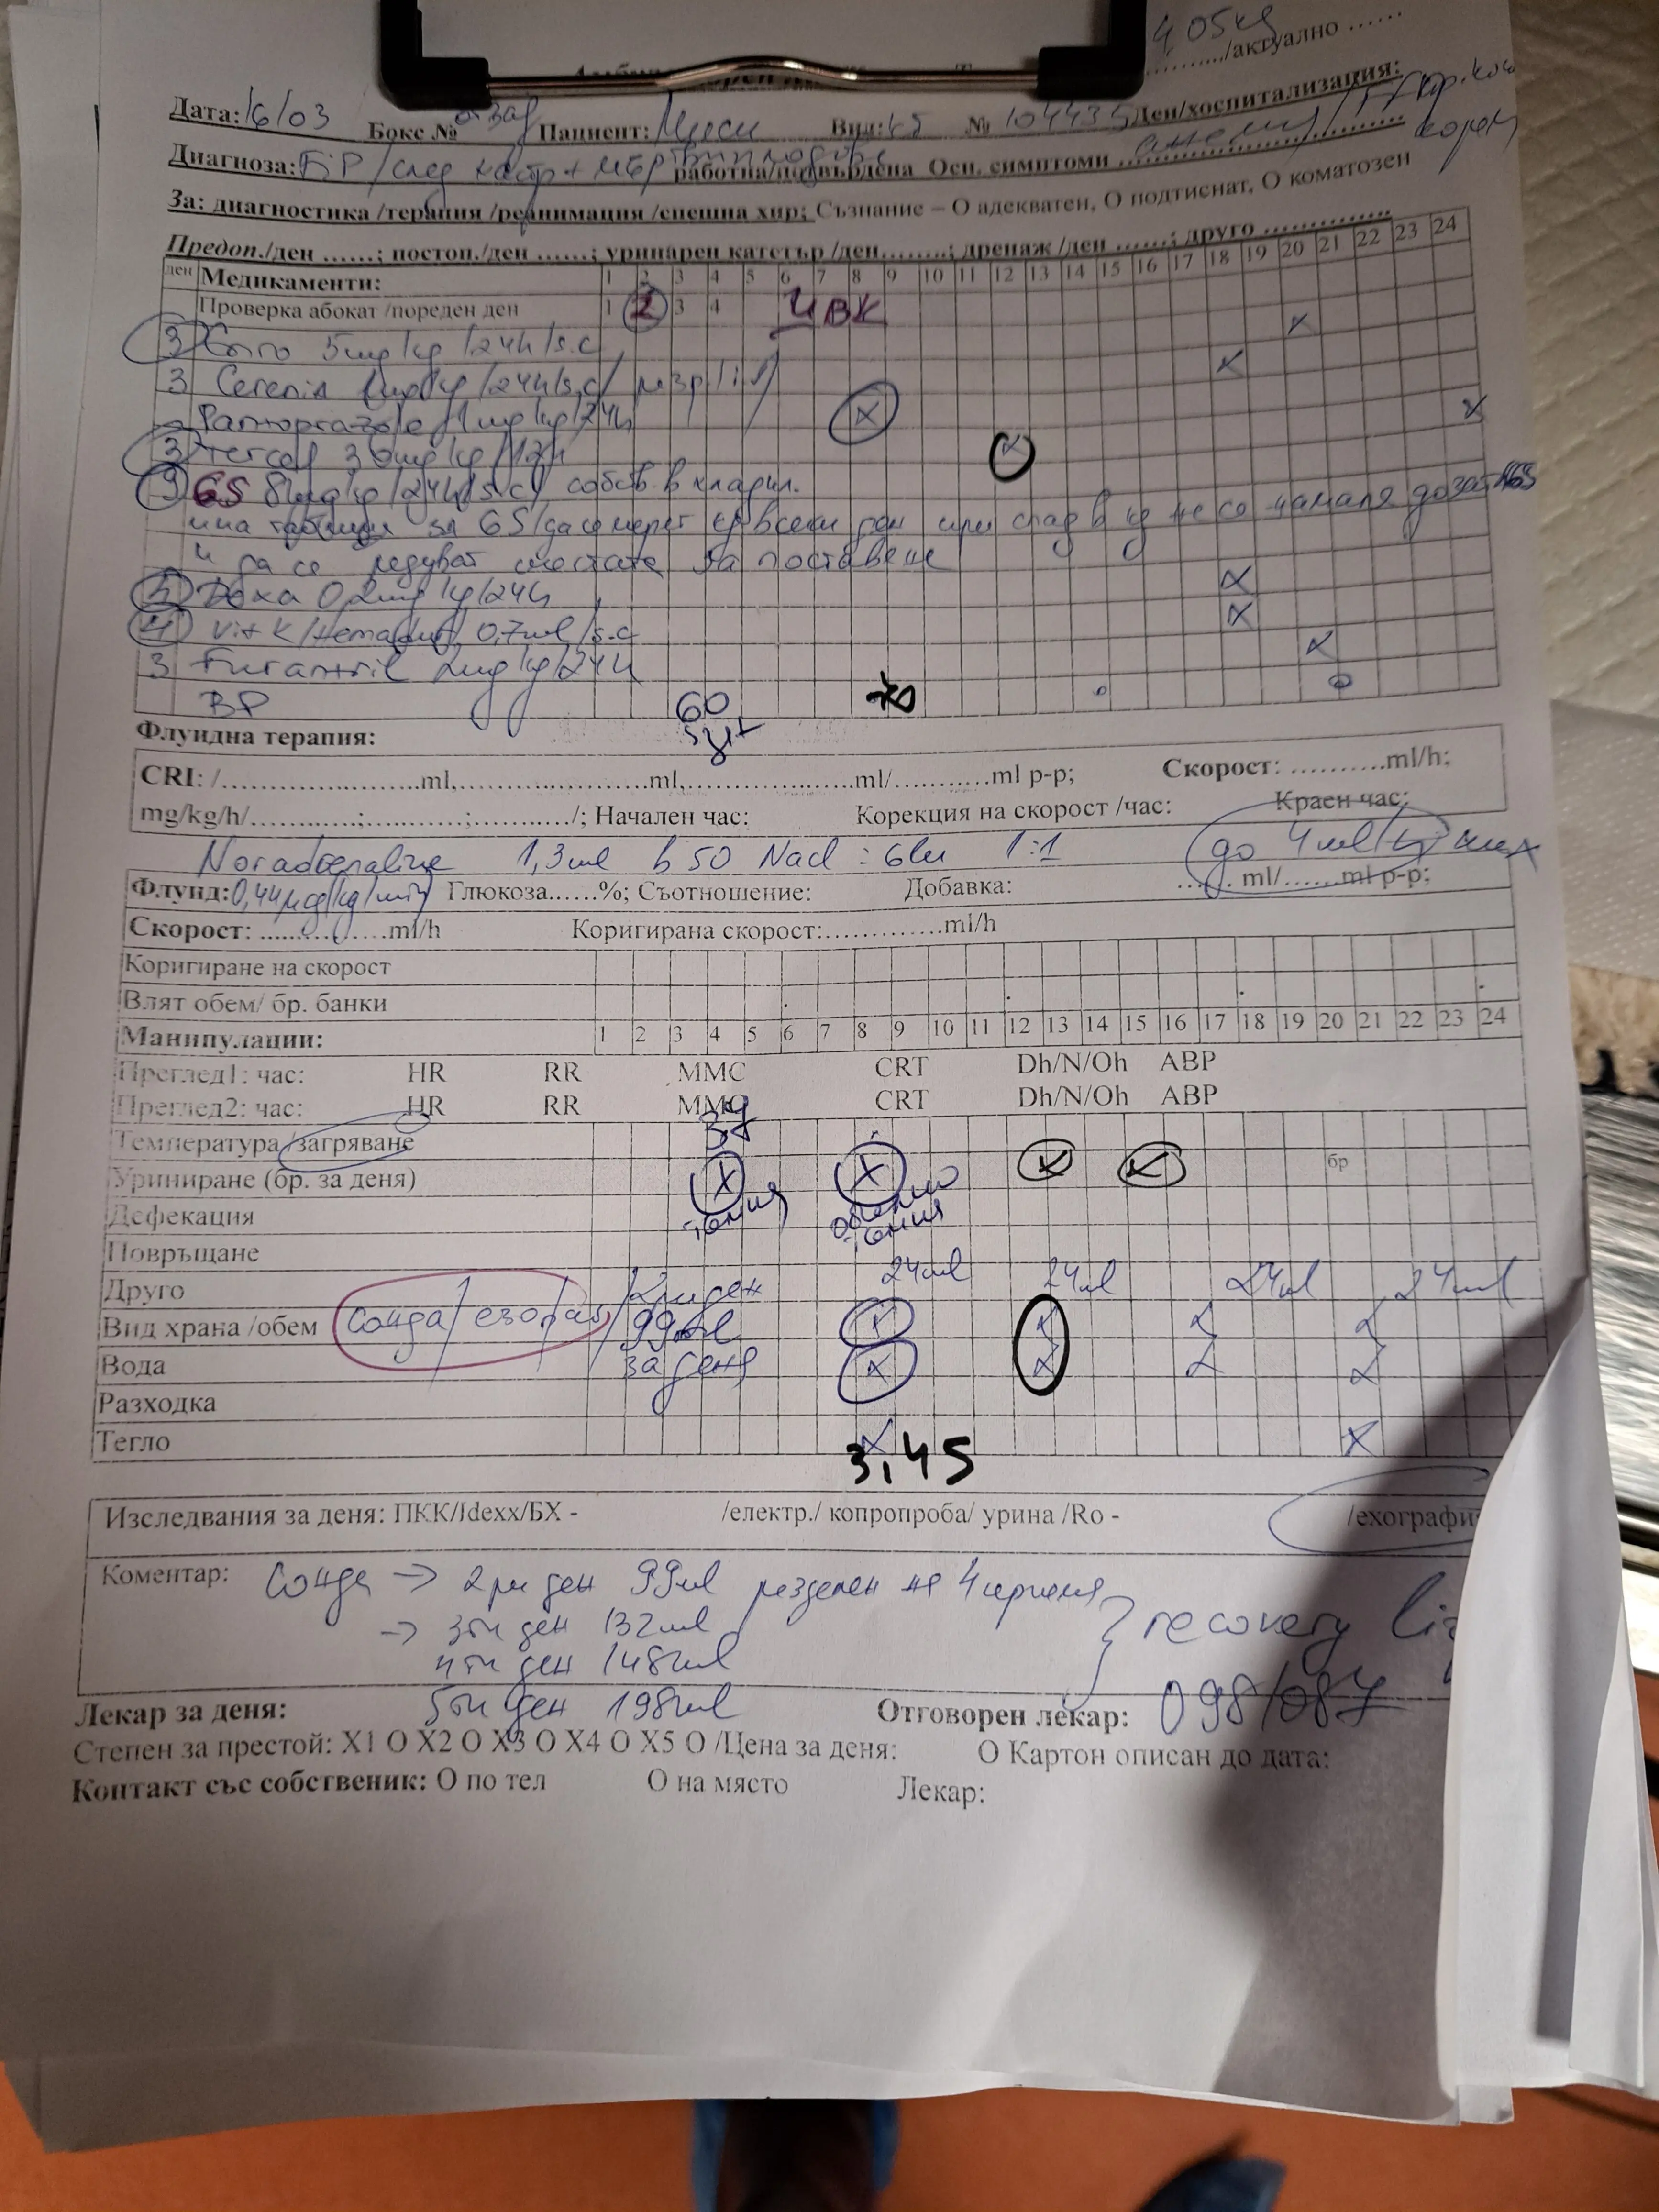 4,05кг
/актуално ......
Дата: 16/03 Бокс № Пациент: Вид: № 104435 Ден/хоспитализация:
Диагноза: работна/потвърдена Осн. симптоми анемия
За: диагностика /терапия /реанимация /спешна хир; Съзнание – О адекватен, О подтиснат, О коматозен
Предоп./ден ......; постоп./ден ......; уринарен катетър /ден.........; дренаж /ден ......; друго ............
ден Медикаменти: 1 2 3 4 5 6 7 8 9 10 11 12 13 14 15 16 17 18 19 20 21 22 23 24
Проверка абокат /пореден ден 1 2 3 4 ЦВК
3 5mg/kg/24h/s.c x
3 Cerenia 1mg/kg/24h/s.c/ x
Pantoprazole 1mg/kg/24h x x
3 30mg/kg/12h x
3 GS 8mg/kg/24h/s.c/ собств. в хладил.
има таблица за GS/да се мери кг всеки ден при спад в кг не се намаля дозата GS
и да се редуват местата за поставяне
5 Dexa 0,2mg/kg/24h x
4 Vit K/ 0,7ml/s.c x
3 Furantril 2mg/kg/24h x
BP 60 70
Флуидна терапия:
CRI: /........................ml,......................ml,....................ml/............ml р-р; Скорост: ..........ml/h;
mg/kg/h/........;...........;.........../; Начален час: Корекция на скорост /час: Краен час:
Noradrenaline 1,3ml в 50 NaCl : Glu 1:1 до 4ml/kg max
Флуид: 0,44µg/kg/min Глюкоза......%; Съотношение: Добавка: ...... ml/......ml р-р;
Скорост: ................ml/h Коригирана скорост:.............ml/h
Коригиране на скорост
Влят обем/ бр. банки
Манипулации: 1 2 3 4 5 6 7 8 9 10 11 12 13 14 15 16 17 18 19 20 21 22 23 24
Преглед1: час: HR RR MMC CRT Dh/N/Oh ABP
Преглед2: час: HR RR MMC CRT Dh/N/Oh ABP
Температура /загряване 37
Уриниране (бр. за деня) x x x x бр
Дефекация
Повръщане
Друго 2ри ден 24ml 24ml 24ml 24ml
Вид храна /обем сонда/езофаг/ 99ml x x x x
Вода за деня x x x x
Разходка
Тегло x x
3,45
Изследвания за деня: ПКК/Idexx/БХ - /електр./ копропроба/ урина /Ro - /ехографи
Коментар: Сонда → 2ри ден 99ml разделен на 4 приема
→ 3ти ден 132ml recovery
4ти ден 148ml
Лекар за деня: 5ти ден 198ml Отговорен лекар: 098/087
Степен за престой: X1 О X2 О X3 О X4 О X5 О /Цена за деня: О Картон описан до дата:
Контакт със собственик: О по тел О на място Лекар: